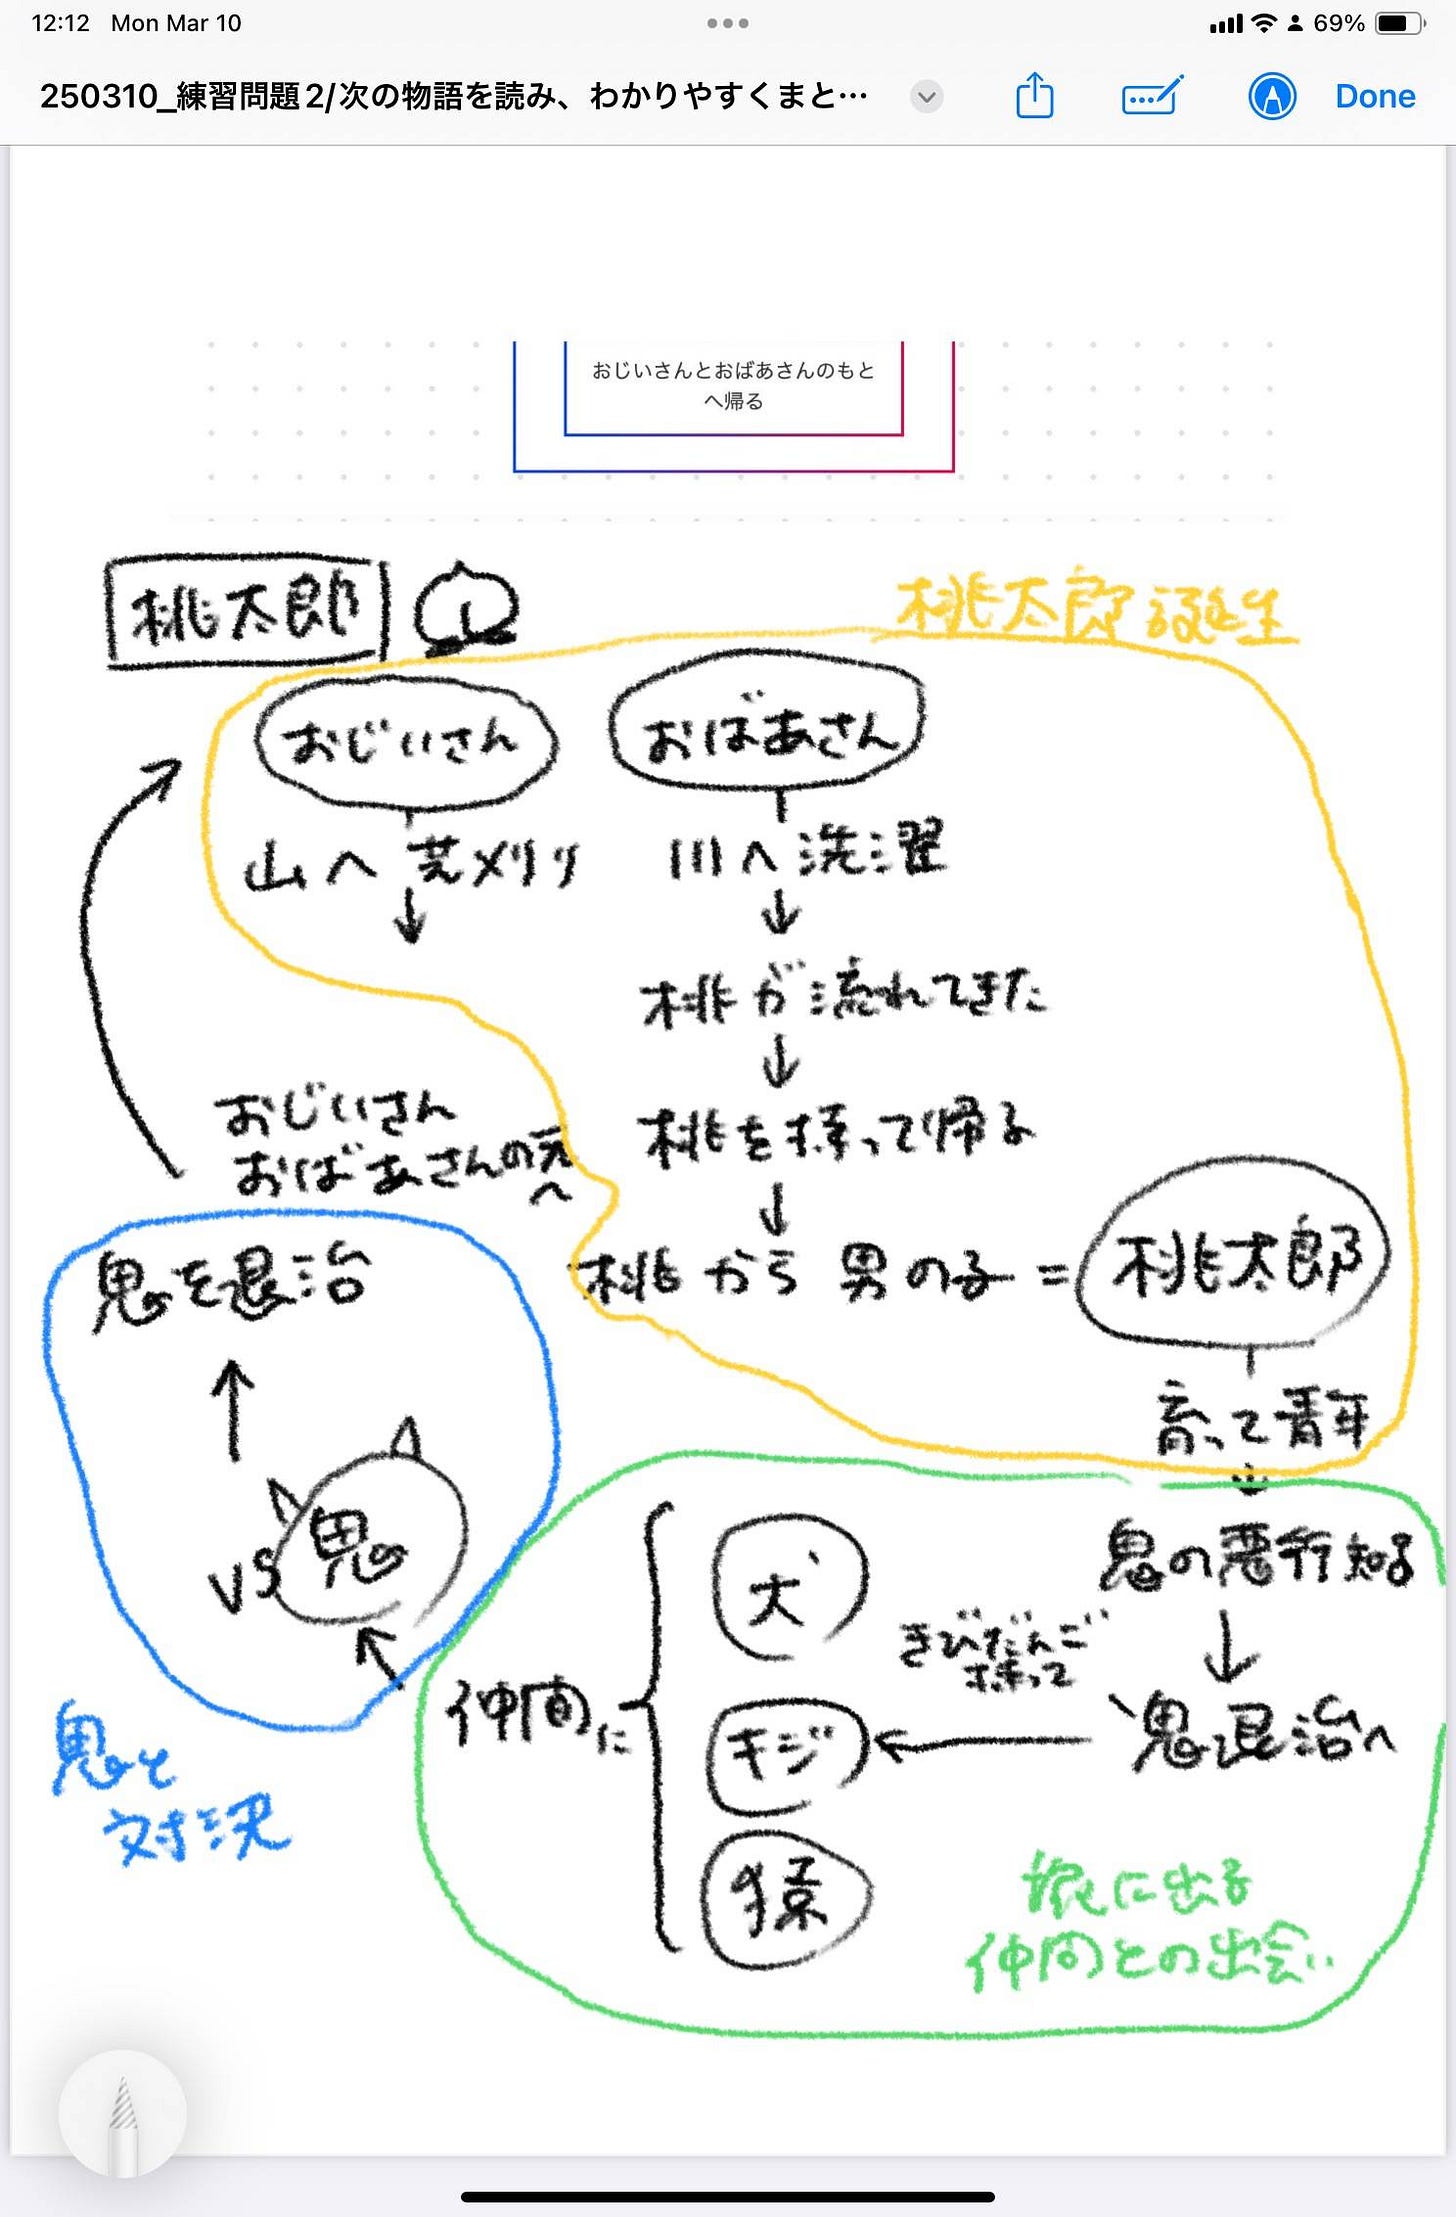 12:12 Mon Mar 10
69%
250310_練習問題2/次の物語を読み、わかりやすくまと…
Done
おじいさんとおばあさんのもと
へ帰る
桃太郎
桃太郎誕生
おじいさん
おばあさん
山へ芝刈り
川へ洗濯
桃が流れてきた
桃を持って帰る
桃から男の子=桃太郎
育って青年
鬼の悪行知る
鬼退治へ
きびだんご
持って
犬
キジ
猿
仲間に
旅に出る
仲間との出会い
vs 鬼
鬼を退治
鬼と
対決
おじいさん
おばあさんの元
へ